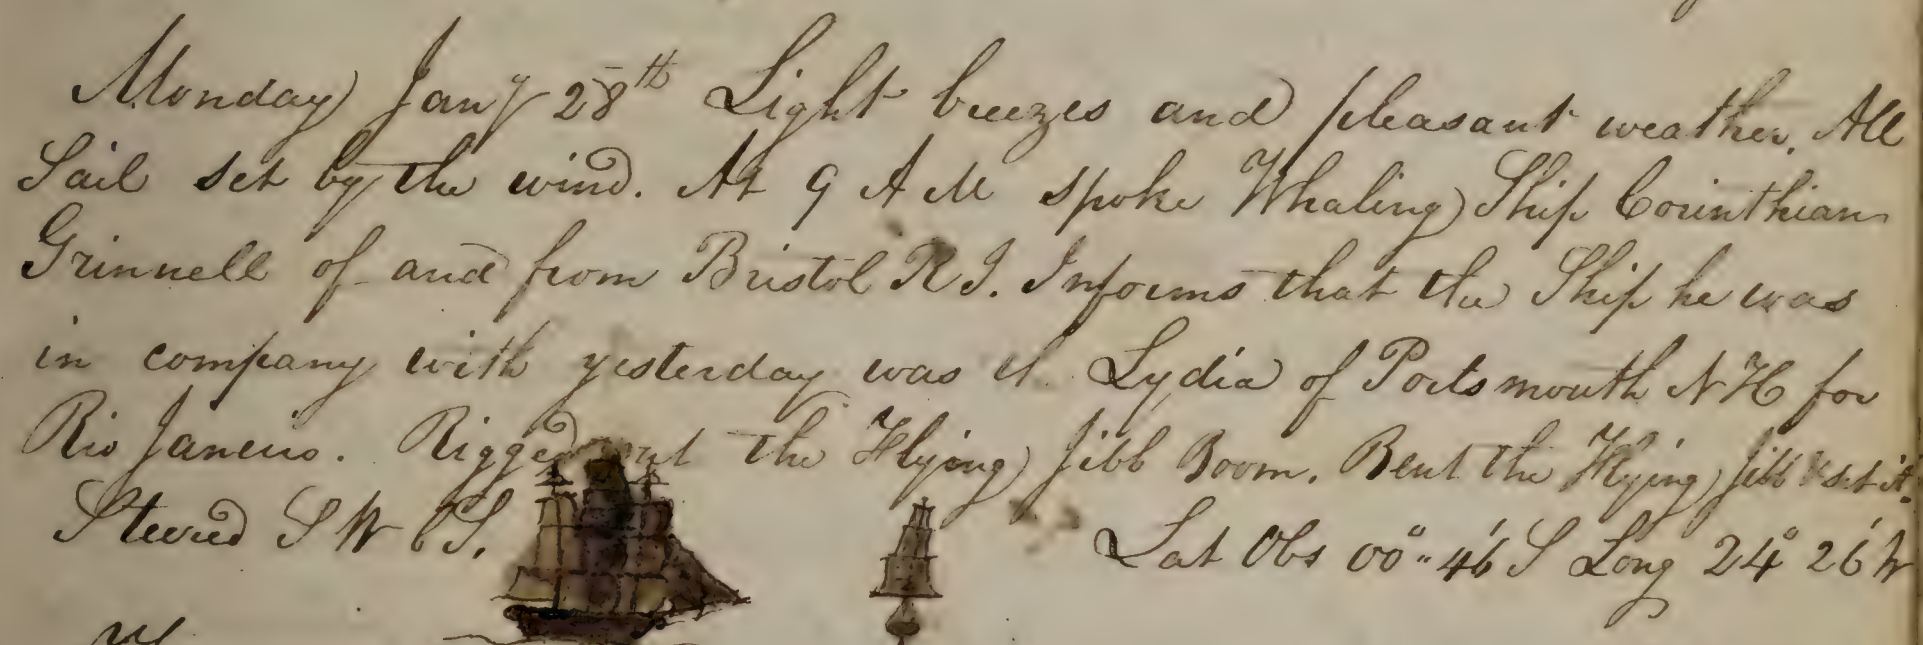 Monday Jany 28th Light breezes and pleasant weather. All
Sail set by the wind. At 9 A M spoke Whaling Ship Corinthian
Grinnell of and from Bristol R I. Informs that the Ship he was
in company with yesterday was Lydia of Portsmouth N H for
Rio Janeiro. Rigged out the Flying Jibb Boom. Bent the Flying Jibb & set it.
Steered S W b S. Lat Obs 00°" 46' S Long 24° 26' W